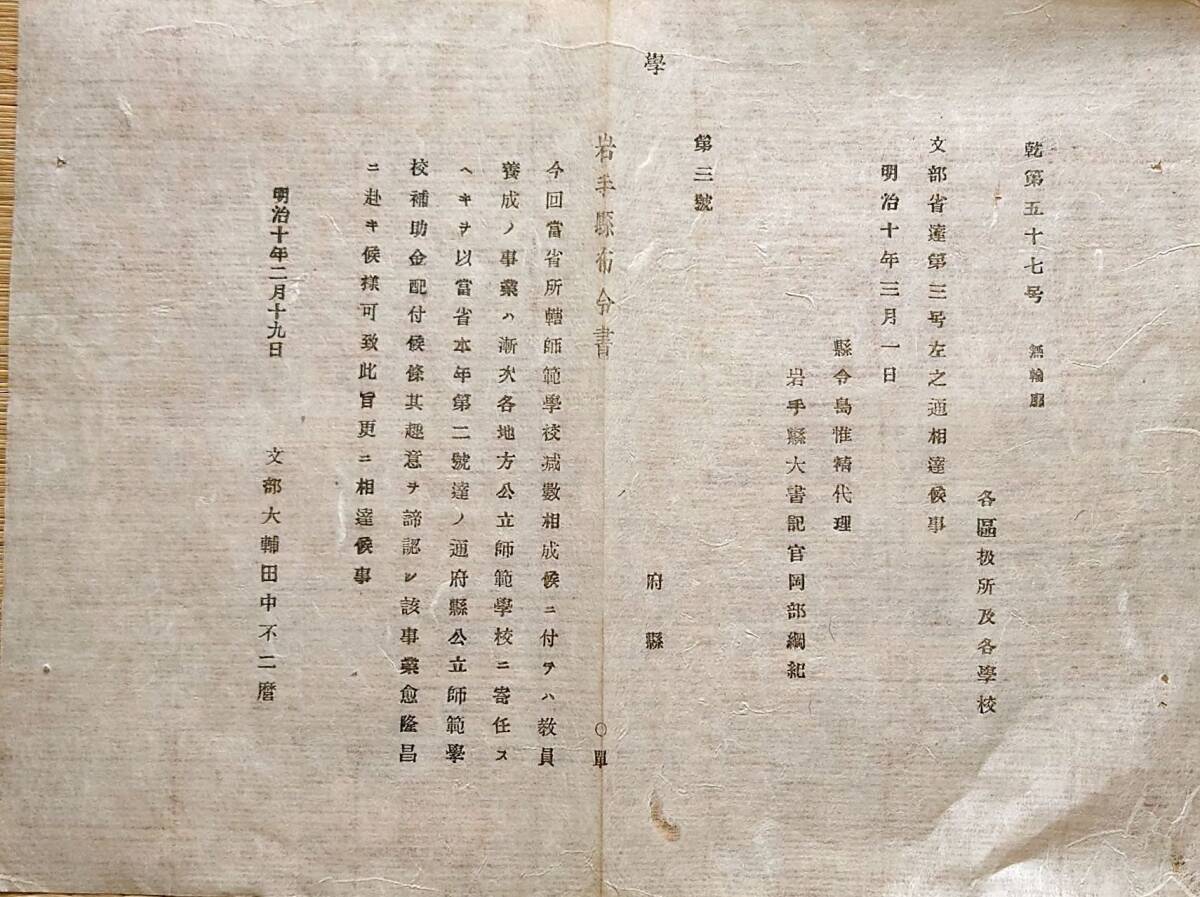 乾第五十七号 無輪廓
各區扱所及各學校
文部省達第三号左之通相達候事
明治十年三月一日
縣令島惟精代理
岩手縣大書記官岡部綱紀
第三號
學
府縣
岩手縣布令書 〇單
今回當省所轄師範學校減數相成候ニ付テハ教員
養成ノ事業ハ漸次各地方公立師範學校ニ寄任ス
ヘキヲ以當省本年第二號達ノ通府縣公立師範學
校補助金配付候條其趣意ヲ諦認シ該事業愈隆昌
ニ赴キ候様可致此旨更ニ相達候事
明治十年二月十九日
文部大輔田中不二麿